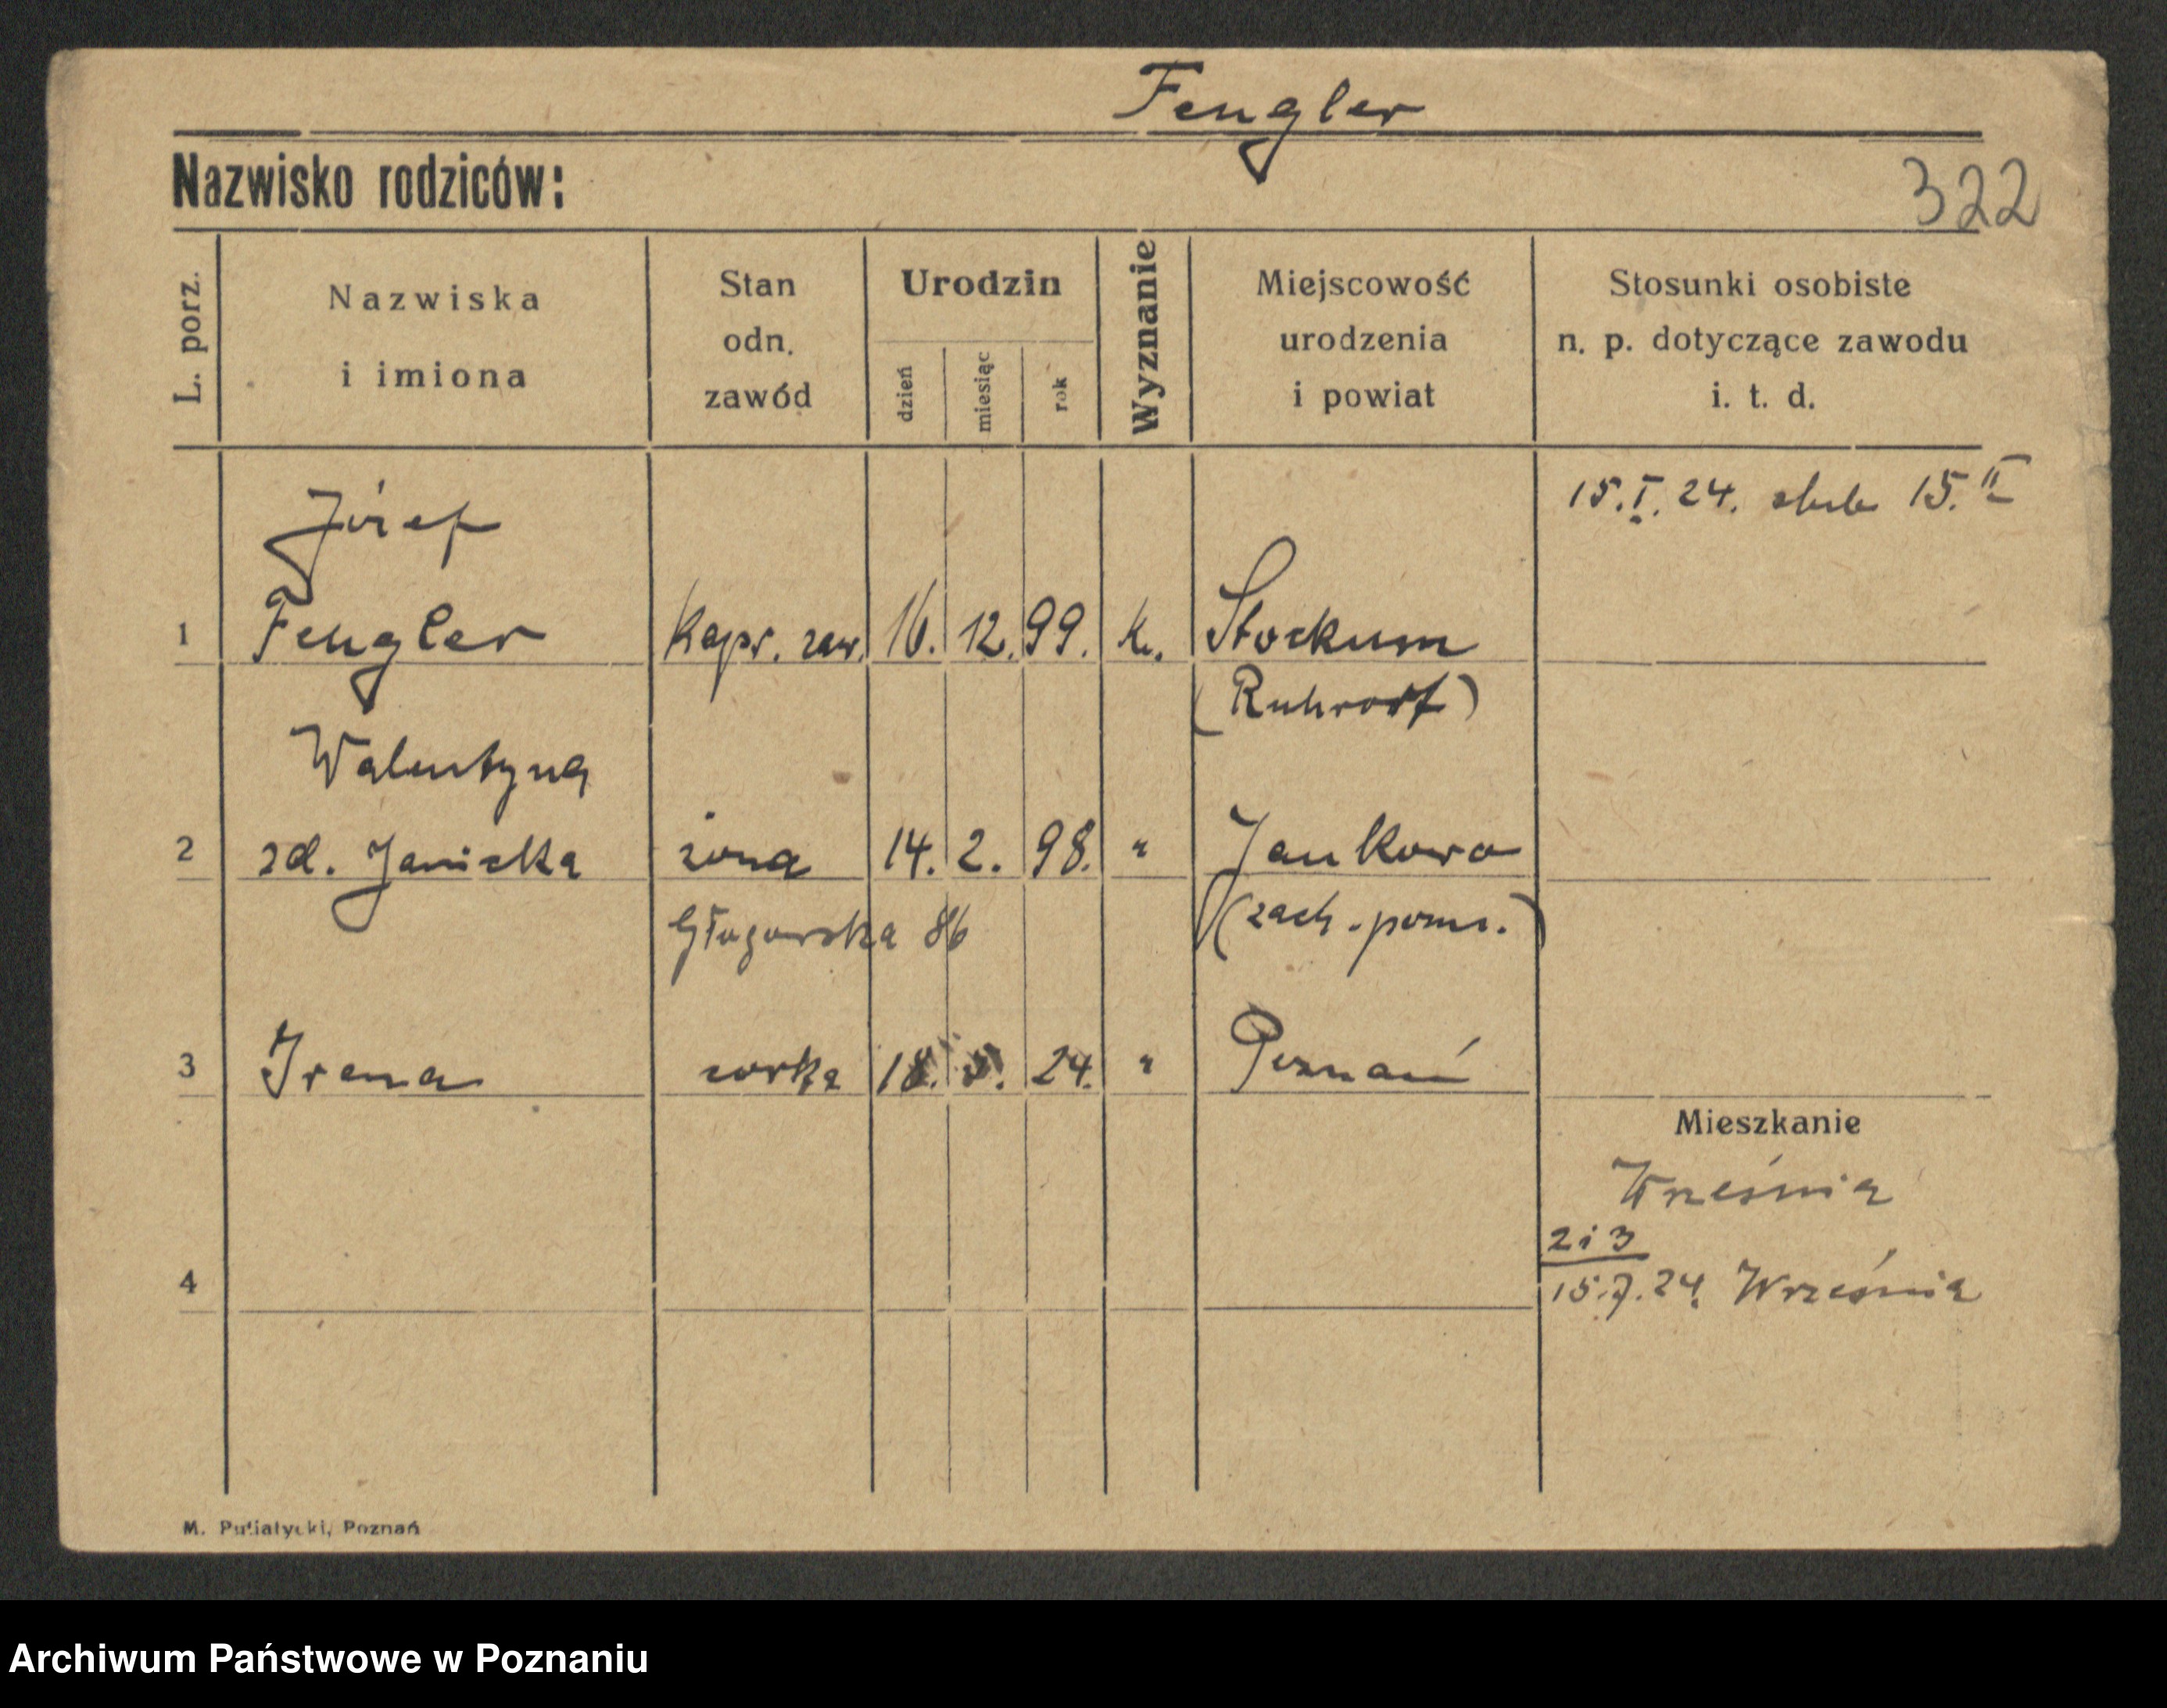 Fengler
Nazwisko rodziców:
322
L. porz.
Nazwiska
i imiona
Stan
odn.
zawód
Urodzin
dzień
miesiąc
rok
Wyznanie
Miejscowość
urodzenia
i powiat
Stosunki osobiste
n. p. dotyczące zawodu
i. t. d.
15.I.24. ślub 15.II
Józef
1 Fengler kapr. zaw. 16. 12. 99. k. Stockum
(Ruhrort)
Walentyna
2 zd. Janicka żona 14. 2. 98. " Jankowo
Głogowska 86 (zach. pomr.)
3 Irena córka 18. 5. 24. " Poznań
Mieszkanie
Września
2 i 3
4 15.7.24. Września
M. Putiatycki, Poznań
Archiwum Państwowe w Poznaniu